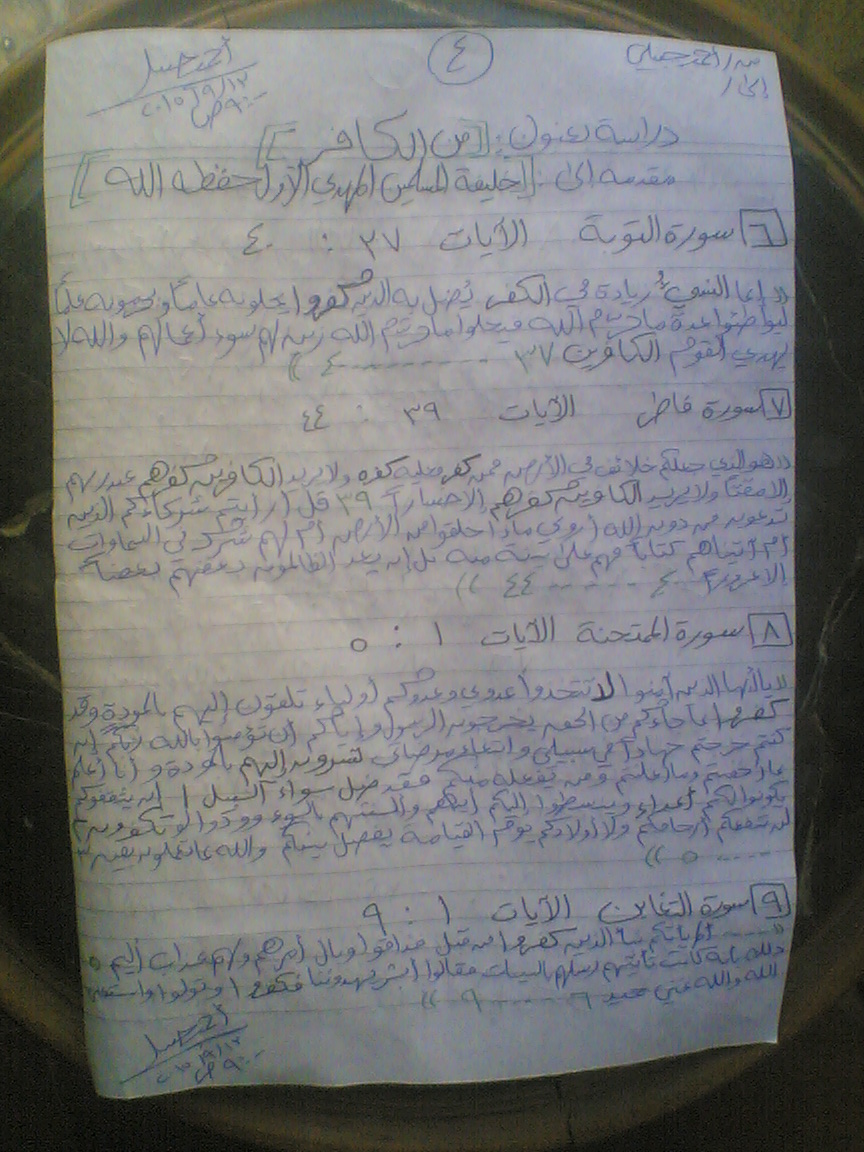 من / أحمد جميلي
إلى /
٤
دراسة بعنوان: [من الكافر]
مقدمه إلى: [خليفة المسلمين المهدي الأول حفظه الله]
٦ سورة التوبة الآيات ٣٧ : ٤٠
(( إنما النسيء زيادة في الكفر يُضل به الذين كفروا يحلونه عاماً ويحرمونه عاماً
ليواطئوا عدة ما حرم الله فيحلوا ما حرم الله زين لهم سوء أعمالهم والله لا
يهدي القوم الكافرين ٣٧ ------- ٤٠ ))
٧ سورة فاطر الآيات ٣٩ : ٤٤
(( هو الذي جعلكم خلائف في الأرض فمن كفر فعليه كفره ولا يزيد الكافرين كفرهم عند ربهم
إلا مقتاً ولا يزيد الكافرين كفرهم إلا خساراً ٣٩ قل أرأيتم شركاءكم الذين
تدعون من دون الله أروني ماذا خلقوا من الأرض أم لهم شرك في السماوات
أم آتيناهم كتاباً فهم على بينة منه بل إن يعد الظالمون بعضهم بعضاً
إلا غروراً ٤٠ ------- ٤٤ ))
٨ سورة الممتحنة الآيات ١ : ٥
(( يا أيها الذين آمنوا لا تتخذوا عدوي وعدوكم أولياء تلقون إليهم بالمودة وقد
كفروا بما جاءكم من الحق يخرجون الرسول وإياكم أن تؤمنوا بالله ربكم إن
كنتم خرجتم جهاداً في سبيلي وابتغاء مرضاتي تسرون إليهم بالمودة وأنا أعلم
بما أخفيتم وما أعلنتم ومن يفعله منكم فقد ضل سواء السبيل ١ إن يثقفوكم
يكونوا لكم أعداء ويبسطوا إليكم أيديهم وألسنتهم بالسوء وودوا لو تكفرون ٢
لن تنفعكم أرحامكم ولا أولادكم يوم القيامة يفصل بينكم والله بما تعملون بصير ٣
----- ٥ ))
٩ سورة التغابن الآيات ١ : ٩
(( ----- ألم يأتكم نبأ الذين كفروا من قبل فذاقوا وبال أمرهم ولهم عذاب أليم ٥
ذلك بأنه كانت تأتيهم رسلهم بالبينات فقالوا أبشر يهدوننا فكفروا وتولوا واستغنى
الله والله غني حميد ٦ ------- ٩ ))